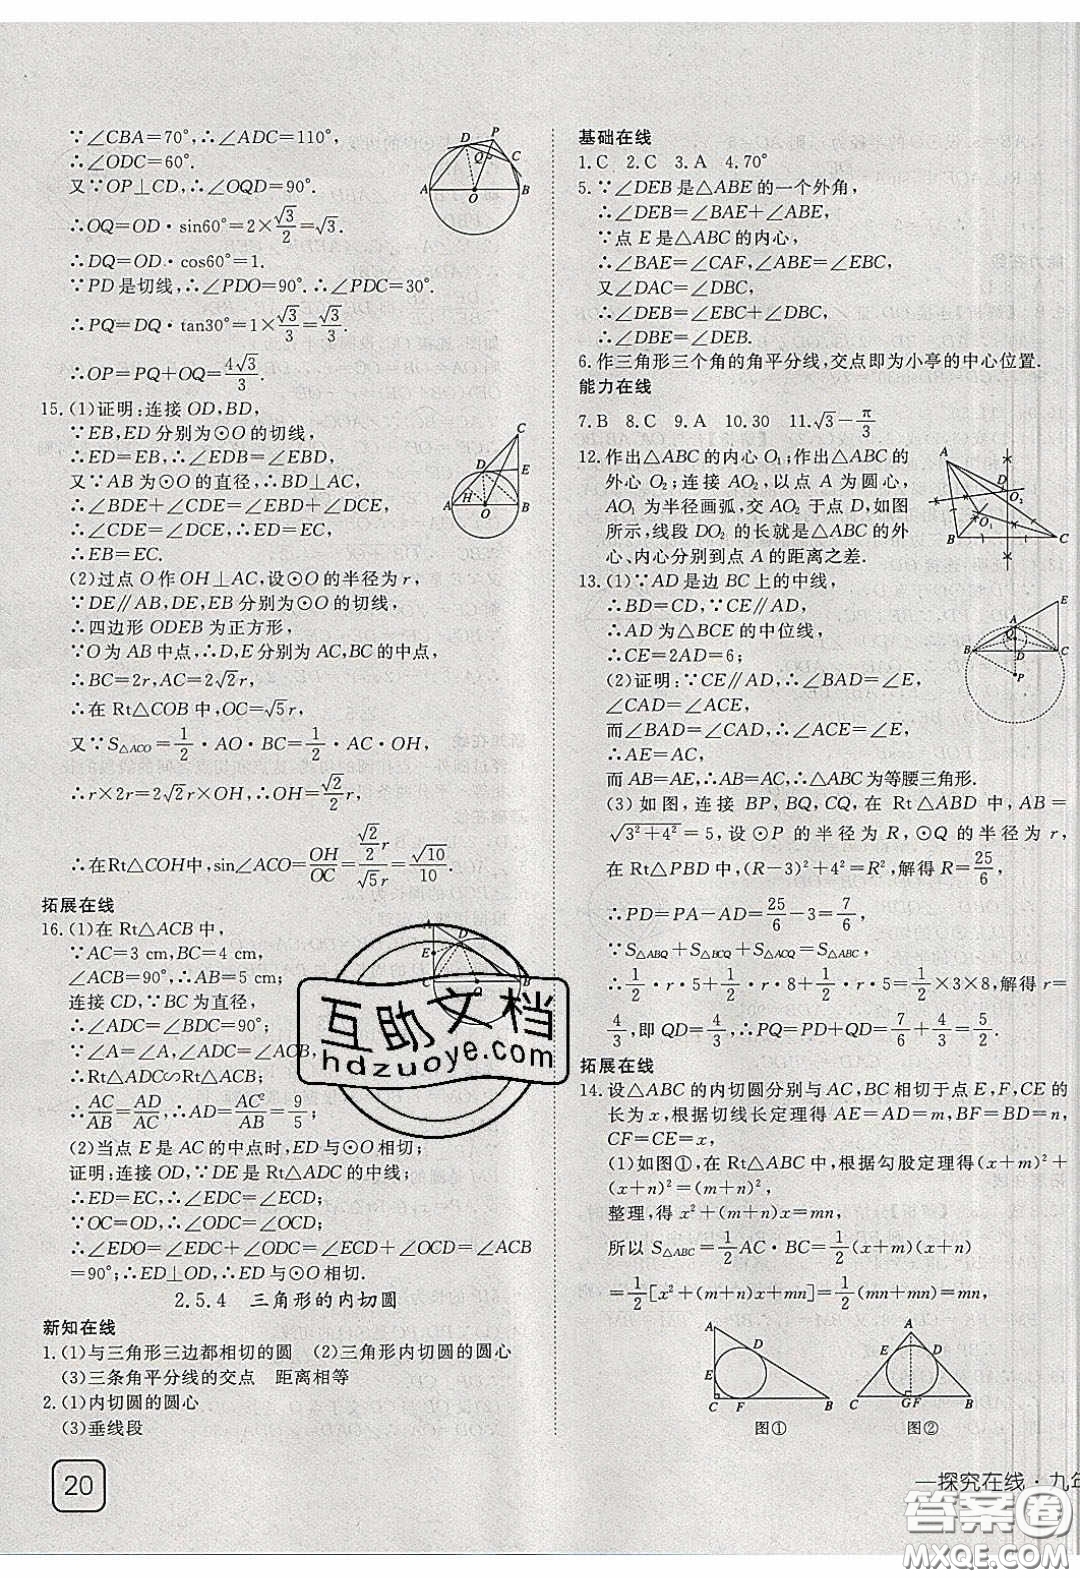 ∵∠CBA=70°,∴∠ADC=110°,
∴∠ODC=60°.
又∵OP⊥CD,∴∠OQD=90°.
∴OQ=OD·sin60°=2×√3/2=√3.
∴DQ=OD·cos60°=1.
∵PD是切线,∴∠PDO=90°.∴∠PDC=30°.
∴PQ=DQ·tan30°=1×√3/3=√3/3.
∴OP=PQ+OQ=4√3/3.
15.(1)证明:连接OD,BD,
∵EB,ED分别为⊙O的切线,
∴ED=EB,∴∠EDB=∠EBD,
又∵AB为⊙O的直径,∴BD⊥AC,
∴∠BDE+∠CDE=∠EBD+∠DCE,
∴∠CDE=∠DCE,∴ED=EC,
∴EB=EC.
(2)过点O作OH⊥AC,设⊙O的半径为r,
∵DE∥AB,DE,EB分别为⊙O的切线,
∴四边形ODEB为正方形,
∵O为AB中点,∴D,E分别为AC,BC中点,
∴BC=2r,AC=2√2r,
∴在Rt△COB中,OC=√5r,
又∵S△ACO=1/2·AO·BC=1/2·AC·OH,
∴r×2r=2√2r×OH,∴OH=√2/2r,
∴在Rt△COH中,sin∠ACO=OH/OC=(√2/2r)/(√5r)=√10/10.
拓展在线
16.(1)在Rt△ACB中,
∵AC=3 cm,BC=4 cm,
∠ACB=90°,∴AB=5 cm;
连接CD,∵BC为直径,
∴∠ADC=∠BDC=90°;
∵∠A=∠A,∠ADC=∠ACB,
∴Rt△ADC∽Rt△ACB;
∴AC/AB=AD/AC,∴AD=AC²/AB=9/5
(2)当点E是AC的中点时,ED与⊙O相切;
证明:连接OD,∵DE是Rt△ADC的中线;
∴ED=EC,∴∠EDC=∠ECD;
∵OC=OD,∴∠ODC=∠OCD;
∴∠EDO=∠EDC+∠ODC=∠ECD+∠OCD=∠ACB
=90°;∴ED⊥OD,∴ED与⊙O相切.
2.5.4 三角形的内切圆
新知在线
1.(1)与三角形三边都相切的圆 (2)三角形内切圆的圆心
(3)三条角平分线的交点 距离相等
2.(1)内切圆的圆心
(3)垂线段
20
基础在线
1.C 2.C 3.A 4.70°
5.∵∠DEB是△ABE的一个外角,
∴∠DEB=∠BAE+∠ABE,
∵点E是△ABC的内心,
∴∠BAE=∠CAF,∠ABE=∠CBE,
又∠DAC=∠DBC,
∴∠DEB=∠EBC+∠DBC,
∴∠DBE=∠DEB.
6.作三角形三个角的角平分线,交点即为小亭的中心位置.
能力在线
7.B 8.C 9.A 10.30 11.√3-π/3
12.作出△ABC的内心O₁;作出△ABC的
外心O₂;连接AO₂,以点A为圆心,
AO₁为半径画弧,交AO₂于点D,如图
所示,线段DO₂的长就是△ABC的外
心、内心分别到点A的距离之差.
13.(1)∵AD是边BC上的中线,
∴BD=CD,∵CE∥AD,
∴AD为△BCE的中位线,
∴CE=2AD=6;
(2)证明:∵CE∥AD,∴∠BAD=∠E,
∠CAD=∠ACE,
而∠BAD=∠CAD,∴∠ACE=∠E,
∴AE=AC,
而AB=AE,∴AB=AC,∴△ABC为等腰三角形.
(3)如图,连接BP,BQ,CQ,在Rt△ABD中,AB=
√(3²+4²)=5,设⊙P的半径为R,⊙Q的半径为r,
在Rt△PBD中,(R-3)²+4²=R²,解得R=25/6,
∴PD=PA-AD=25/6-3=7/6,
∵S△ABQ+S△BCQ+S△ACQ=S△ABC,
∴1/2·r·5+1/2·r·8+1/2·r·5=1/2×3×8,解得r=
4/3,即QD=4/3,∴PQ=PD+QD=7/6+4/3=5/2.
拓展在线
14.设△ABC的内切圆分别与AC,BC相切于点E,F,CE的
长为x,根据切线长定理得AE=AD=m,BF=BD=n,
CF=CE=x,
(1)如图①,在Rt△ABC中,根据勾股定理得(x+m)²+
(x+n)²=(m+n)²,
整理,得x²+(m+n)x=mn,
所以S△ABC=1/2AC·BC=1/2(x+m)(x+n)
=1/2[x²+(m+n)x+mn]=1/2(mn+mn)=mn
图① 图②
—探究在线·九年
互助文档
hdzuoye.com
答案圈
MXQE.COM